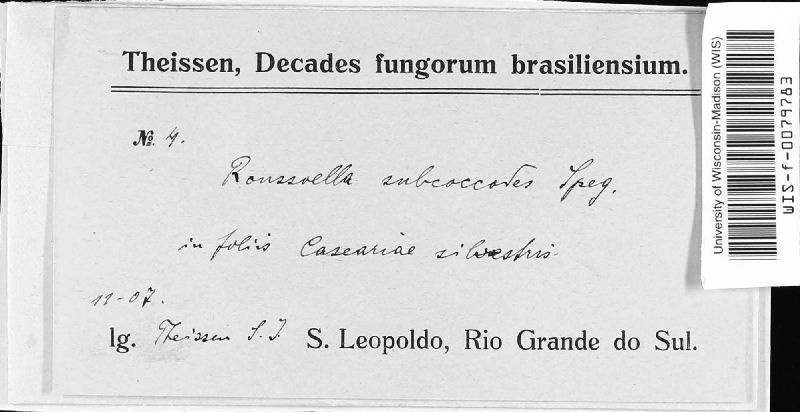 Theissen, Decades fungorum brasiliensium.
№ 4.
Roussoella subcoccodes Speg.
in foliis Caseariae silvestris
11-07.
lg. Theissen S. J. S. Leopoldo, Rio Grande do Sul.
University of Wisconsin-Madison (WIS)
WIS-f-0079783